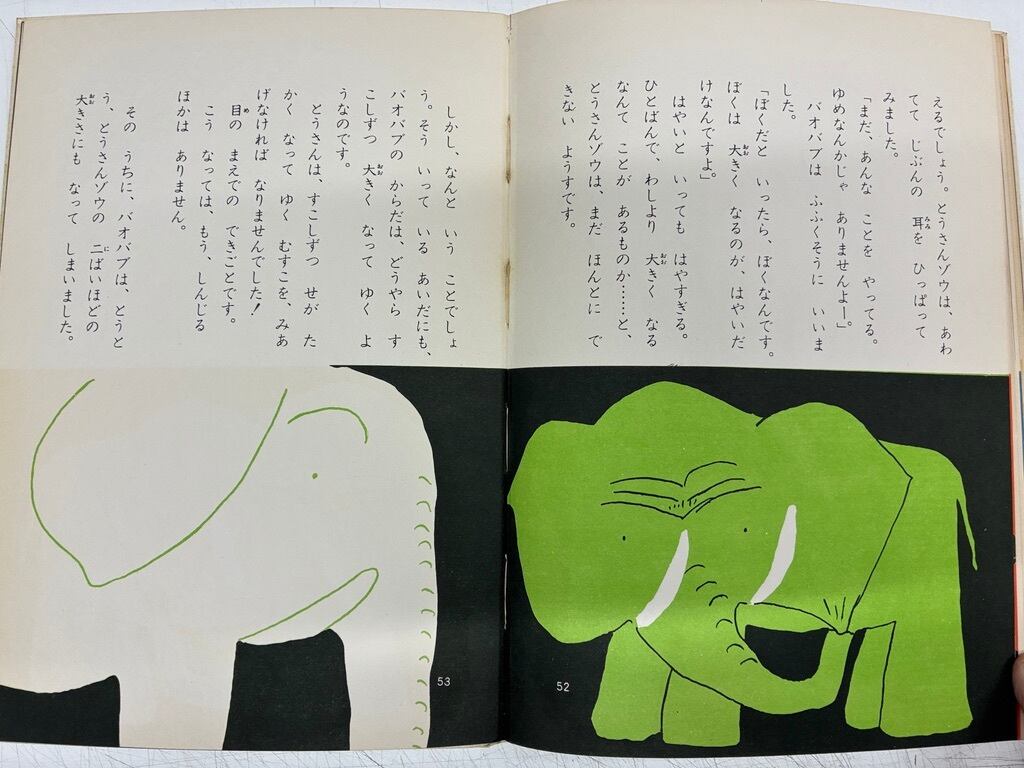 えるでしょう。とうさんゾウは、あわ
てて じぶんの 耳を ひっぱって
みました。
「まだ、あんな ことを やってる。
ゆめなんかじゃ ありませんよー」
バオバブは ふふくそうに いいま
した。
「ぼくだと いったら、ぼくなんです。
ぼくは 大きく なるのが、はやいだ
けなんですよ」
はやいと いっても はやすぎる。
ひとばんで、わしより 大きく なる
なんて ことが あるものか……と、
とうさんゾウは、まだ ほんとに で
きない ようすです。
52
しかし、なんと いう ことでしょ
う。そう いって いる あいだにも、
バオバブの からだは、どうやら す
こしずつ 大きく なって ゆく よ
うなのです。
とうさんは、すこしずつ せが た
かく なって ゆく むすこを、みあ
げなければ なりませんでした!
目の まえでの できごとです。
こう なっては、もう、しんじる
ほかは ありません。
その うちに、バオバブは、とうと
う、とうさんゾウの 二ばいほどの
大きさにも なって しまいました。
53